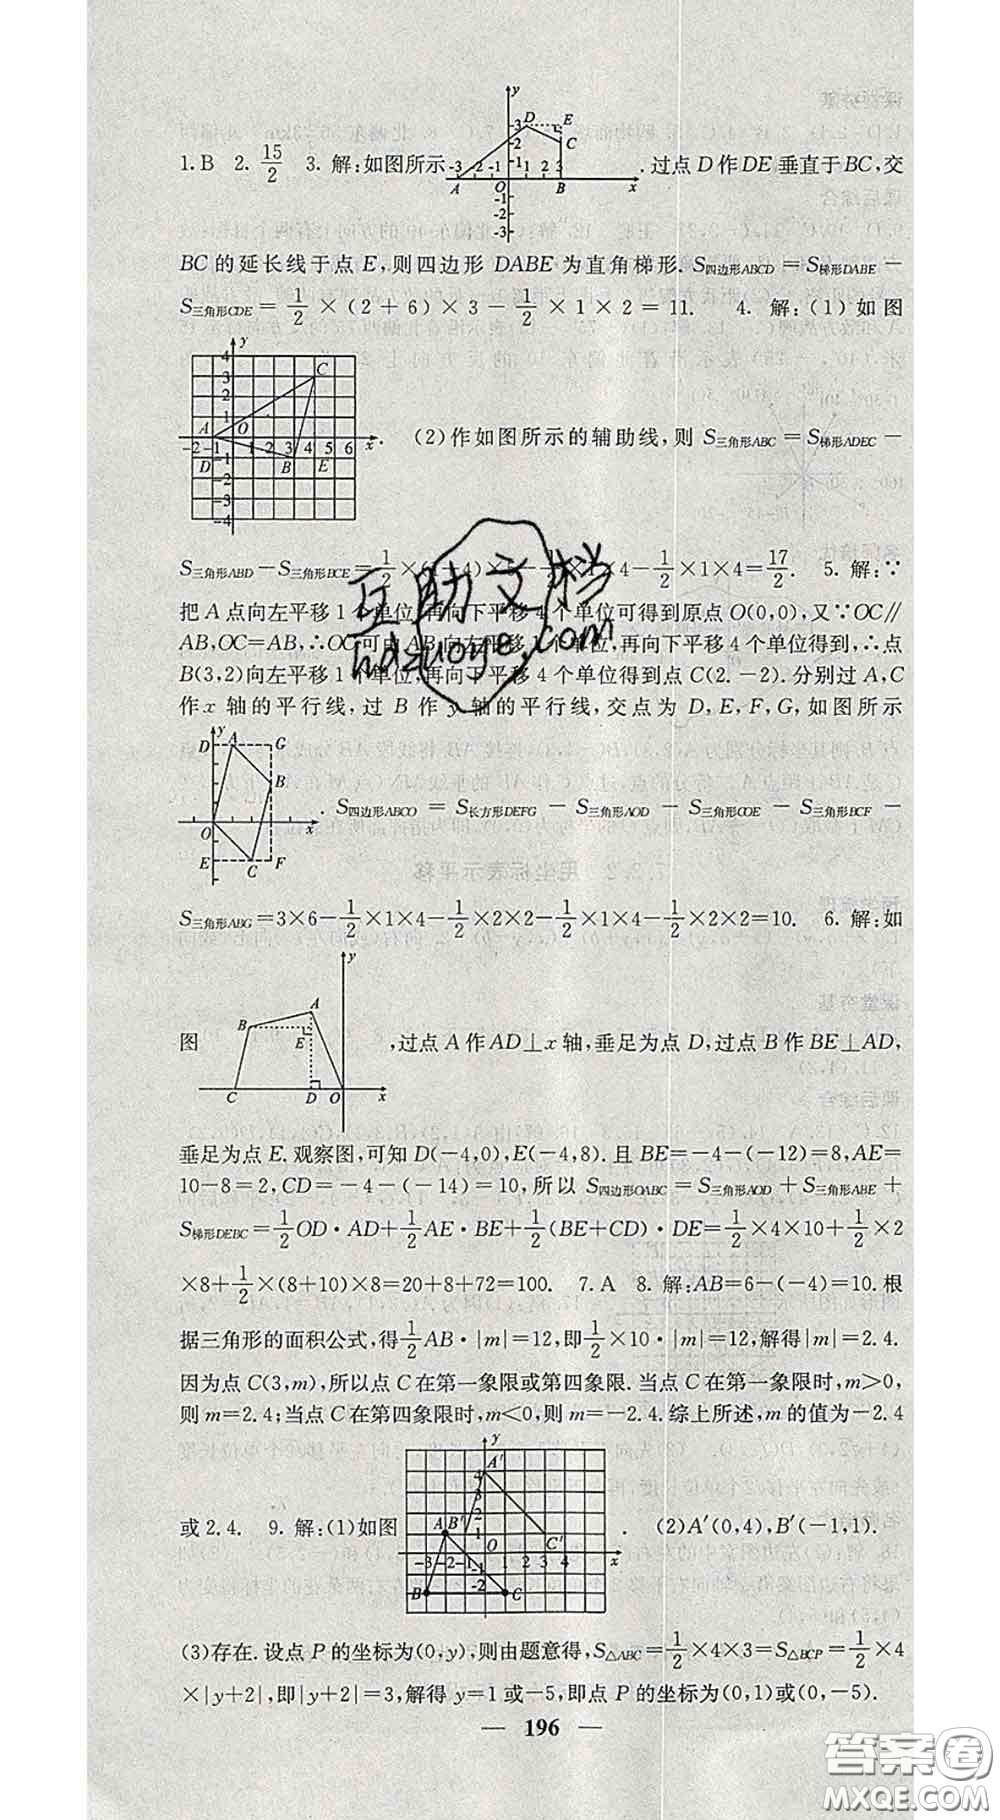 1.B 2. 15/2 3. 解:如图所示 .过点D作DE垂直于BC,交
BC的延长线于点E,则四边形DABE为直角梯形.S四边形ABCD=S梯形DABE-
S三角形CDE=1/2×(2+6)×3-1/2×1×2=11. 4. 解:(1)如图
. (2)作如图所示的辅助线,则S三角形ABC=S梯形ADEC-
S三角形ABD-S三角形BCE=1/2×( 4)× 1×4-1/2×1×4=17/2. 5. 解:∵
把A点向左平移1个单位,再向下平移4个单位可得到原点O(0,0),又∵OC∥
AB,OC=AB,∴OC可由AB向左平移1个单位,再向下平移4个单位得到,∴点
B(3,2)向左平移1个单位,再向下平移4个单位得到点C(2.-2).分别过A,C
作x轴的平行线,过B作y轴的平行线,交点为D,E,F,G,如图所示
. S四边形ABCO=S长方形DEFG-S三角形AOD-S三角形COE-S三角形BCF-
S三角形ABG=3×6-1/2×1×4-1/2×2×2-1/2×1×4-1/2×2×2=10. 6. 解:如
图 ,过点A作AD⊥x轴,垂足为点D,过点B作BE⊥AD,
垂足为点E.观察图,可知D(-4,0),E(-4,8).且BE=-4-(-12)=8,AE=
10-8=2,CD=-4-(-14)=10,所以S四边形OABC=S三角形AOD+S三角形ABE+
S梯形DEBC=1/2OD·AD+1/2AE·BE+1/2(BE+CD)·DE=1/2×4×10+1/2×2
×8+1/2×(8+10)×8=20+8+72=100. 7.A 8. 解:AB=6-(-4)=10.根
据三角形的面积公式,得1/2AB·|m|=12,即1/2×10·|m|=12,解得|m|=2.4.
因为点C(3,m),所以点C在第一象限或第四象限.当点C在第一象限时,m>0,
则m=2.4;当点C在第四象限时,m<0,则m=-2.4.综上所述,m的值为-2.4
或2.4. 9. 解:(1)如图 . (2)A′(0,4),B′(-1,1).
(3)存在.设点P的坐标为(0,y),则由题意得,S△ABC=1/2×4×3=S△BCP=1/2×4
×|y+2|,即|y+2|=3,解得y=1或-5,即点P的坐标为(0,1)或(0,-5).
— 196 —
互助文档
hdzuoye.com
答案圈
MXQE.COM